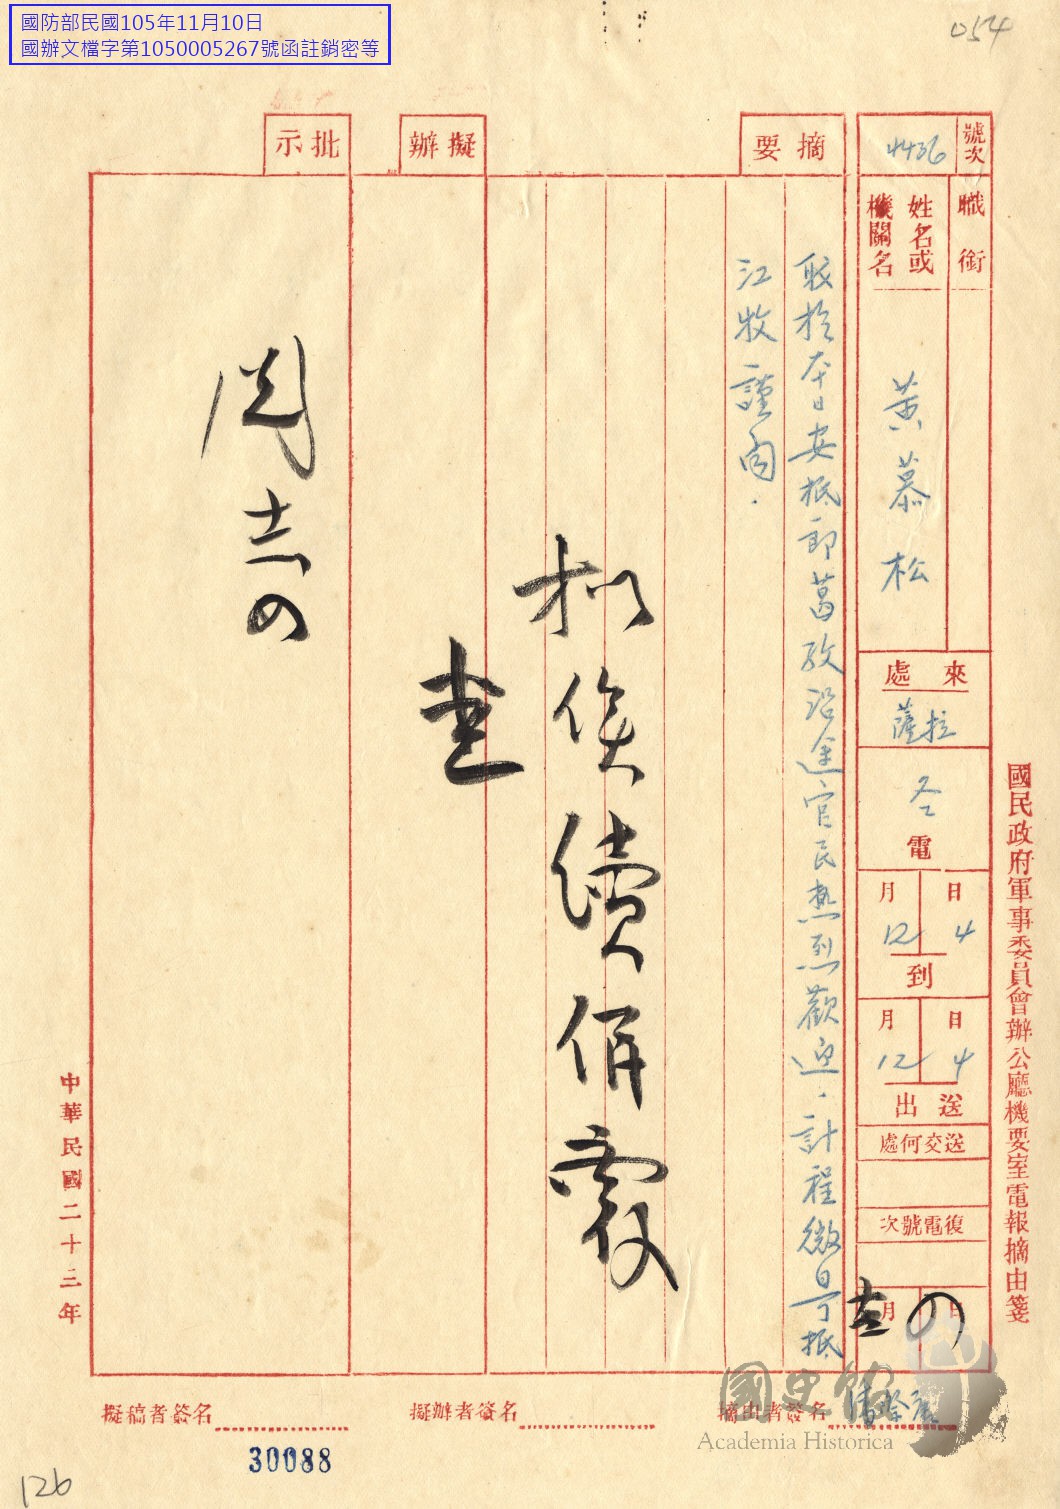 國防部民國105年11月10日
國辦文檔字第1050005267號函註銷密等
054
國民政府軍事委員會辦公廳機要室電報摘由箋
號次
4436
職銜
姓名或
機關名
黃慕松
來處
薩拉
冬電
月 日
12 4
到
月 日
12 4
送出
送交何處
復電號次
月 日
摘要
職於本日安抵郎葛孜沿途官民熱烈歡迎．計程微日可抵
江孜謹聞．
擬俟續併覆
擬辦
批示
閱
中華民國二十三年
摘由者簽名
擬辦者簽名
擬稿者簽名
30088
126
國史館
Academia Historica